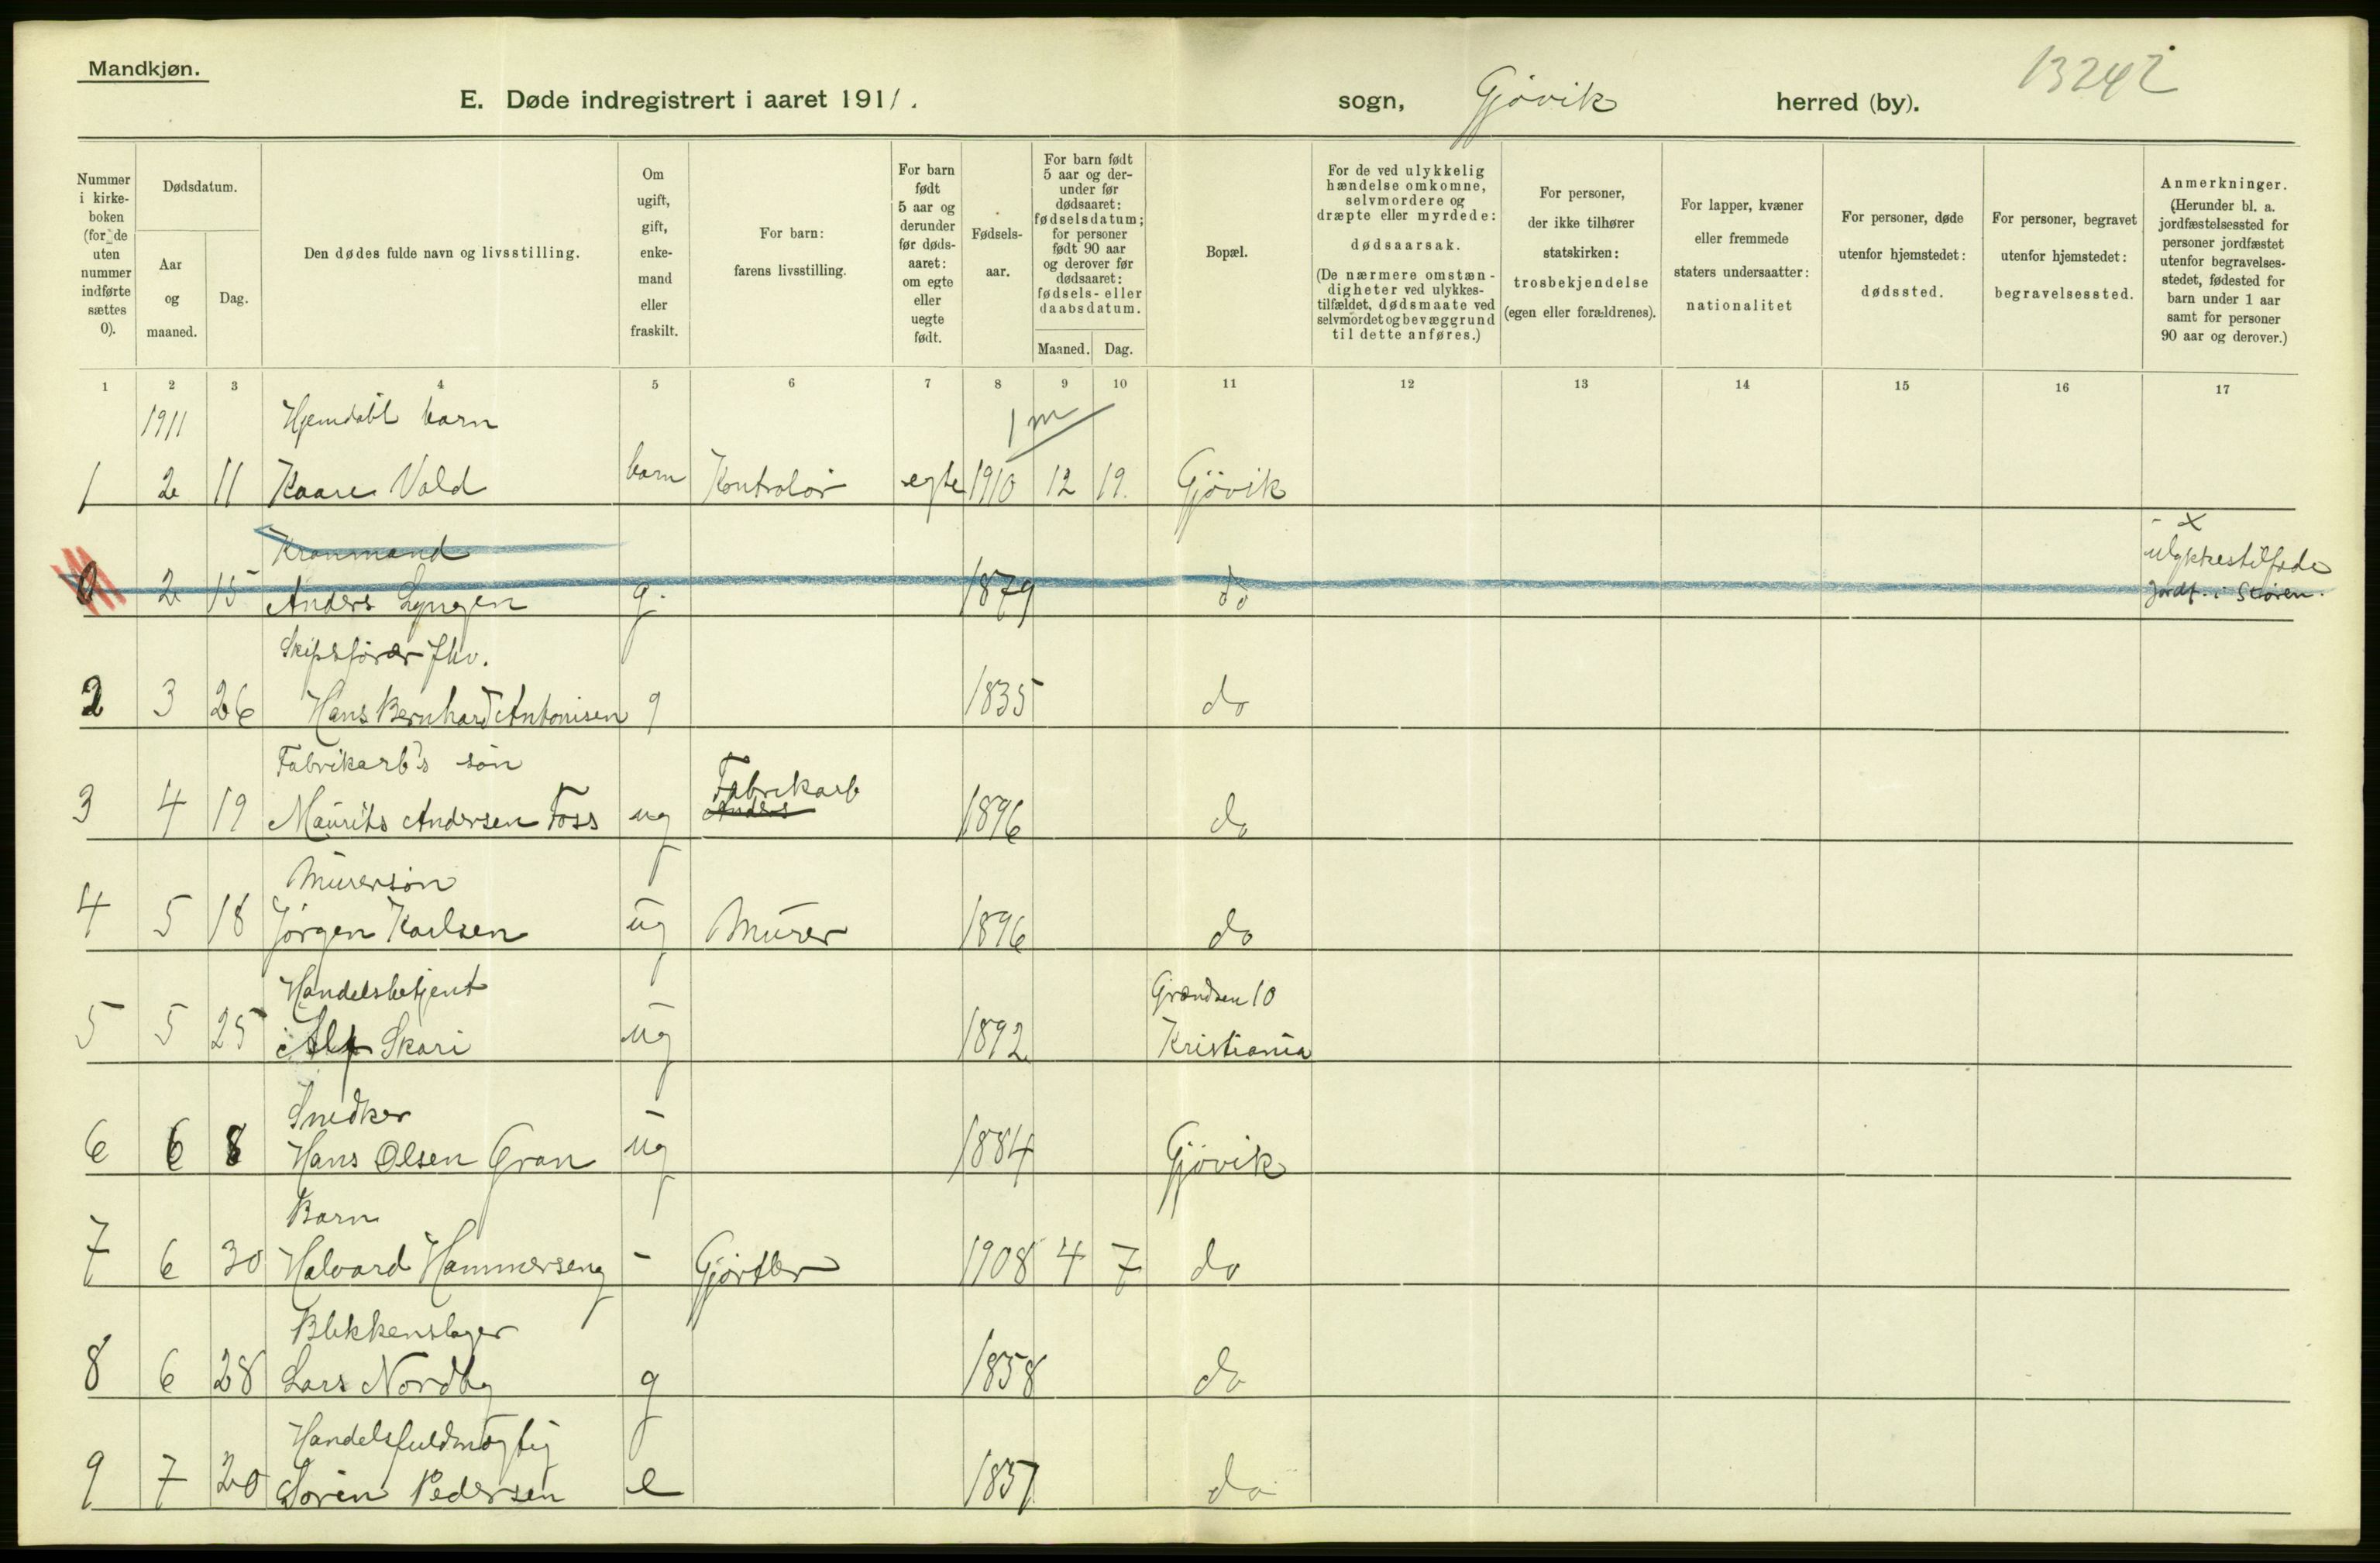 Mandkjøn.
13242
E. Døde indregistrert i aaret 1911. sogn, Gjøvik herred (by).
Nummer i kirke-boken (for de uten nummer indførte sættes 0).
Dødsdatum.
Aar og maaned.
Dag.
Den dødes fulde navn og livsstilling.
Om ugift, gift, enke-mand eller fraskilt.
For barn: farens livsstilling.
For barn født 5 aar og derunder før døds-aaret: om egte eller uegte født.
Fødsels-aar.
For barn født 5 aar og der-under før dødsaaret: fødselsdatum; for personer født 90 aar og derover før dødsaaret: fødsels- eller daabsdatum.
Maaned. Dag.
Bopæl.
For de ved ulykkelig hændelse omkomne, selvmordere og dræpte eller myrdede: dødsaarsak. (De nærmere omstæn-digheter ved ulykkes-tilfældet, dødsmaate ved selvmordet og bevæggrund til dette anføres.)
For personer, der ikke tilhører statskirken: trosbekjendelse (egen eller forældrenes).
For lapper, kvæner eller fremmede staters undersaatter: nationalitet
For personer, døde utenfor hjemstedet: dødssted.
For personer, begravet utenfor hjemstedet: begravelsessted.
Anmerkninger. (Herunder bl. a. jordfæstelsessted for personer jordfæstet utenfor begravelses-stedet, fødested for barn under 1 aar samt for personer 90 aar og derover.)
1 2 3 4 5 6 7 8 9 10 11 12 13 14 15 16 17
1911 Hjemdøbt barn 1 m
1 2 11 Kaare Vold barn Kontrolør egte 1910 12 19. Gjøvik
Kranmand x ulykkestilfælde
0 2 15 Anders Lyngen g. 1879 do Jordf. i Støren.
Skipsfører fhv.
2 3 26 Hans Bernhard Antonisen g 1835 do
Fabrikarb's søn Fabrikarb
3 4 19 Mauritz Andersen Foss ug Anders 1896 do
Murersøn
4 5 18 Jørgen Karlsen ug Murer 1896 do
Handelsbetjent Grændsen 10
5 5 25 Alf Skari ug 1892 Kristiania
Snedker
6 6 8 Hans Olsen Gran ug 1884 Gjøvik
Barn
7 6 30 Halvard Hammerseng - Gjørtler 1908 4 7 do
Blikkenslager
8 6 28 Lars Nordby g 1858 do
Handelsfuldmægtig
9 7 20 Søren Pedersen e 1837 do